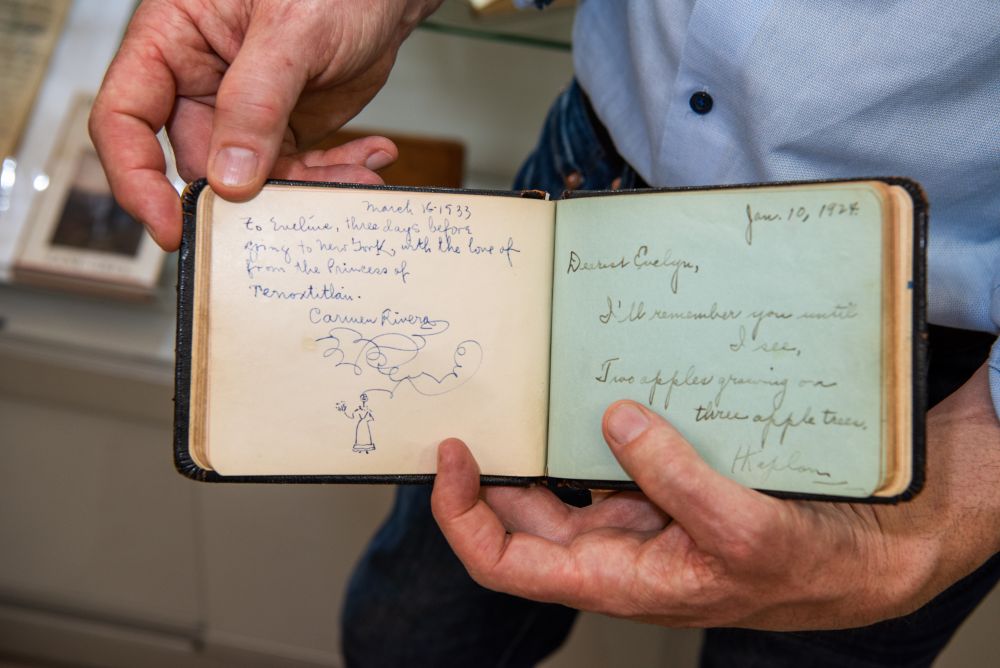 March 16-1933
to Eveline, three days before
going to New York, with the love of
from the Princess of
Tenoxtitlán.
Carmen Rivera
Jan. 10, 1924
Dearest Evelyn,
I'll remember you until
I see,
Two apples growing on
three apple trees.
H Kaplan